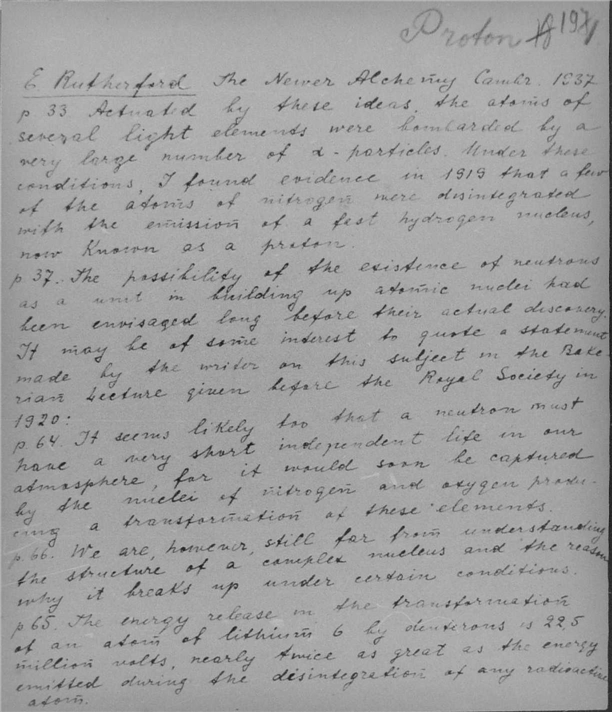 Proton 197
E. Rutherford The Newer Alchemy Cambr. 1937
p 33. Actuated by these ideas, the atoms of
several light elements were bombarded by a
very large number of α-particles. Under these
conditions, I found evidence in 1919 that a few
of the atoms of nitrogen were disintegrated
with the emission of a fast hydrogen nucleus,
now known as a proton.
p 37. The possibility of the existence of neutrons
as a unit in building up atomic nuclei had
been envisaged long before their actual discovery.
It may be of some interest to quote a statement
made by the writer on this subject in the Bake
rian Lecture given before the Royal Society in
1920:
p. 64. It seems likely too that a neutron must
have a very short independent life in our
atmosphere, for it would soon be captured
by the nuclei of nitrogen and oxygen produ-
cing a transformation of these elements.
p. 66. We are, however, still far from understanding
the structure of a complex nucleus and the reason
why it breaks up under certain conditions.
p 65. The energy release in the transformation
of an atom of lithium 6 by deuterons is 22,5
million volts, nearly twice as great as the energy
emitted during the disintegration of any radioactive
atom.